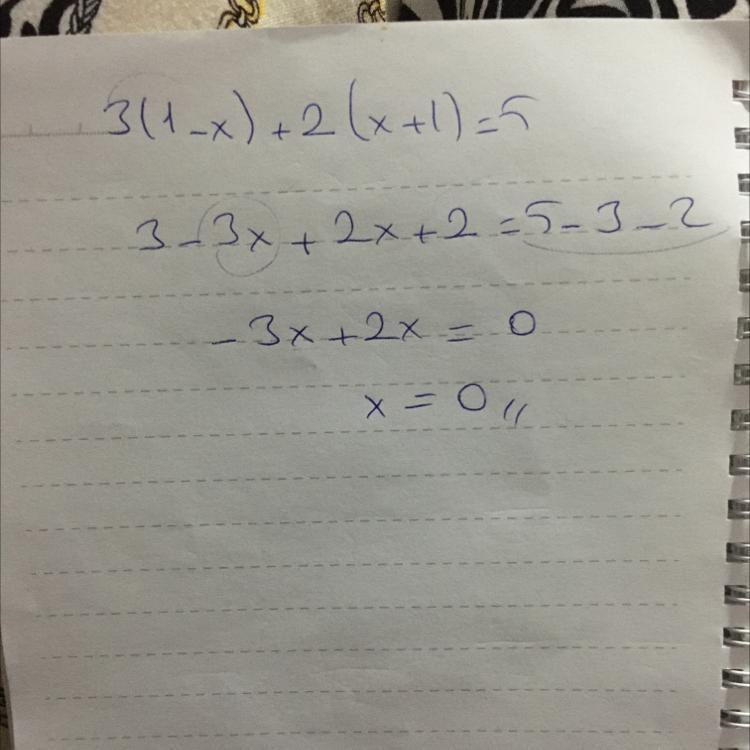 3(1-x)+2(x+1)=5
3-3x+2x+2=5-3-2
-3x+2x=0
x=0//